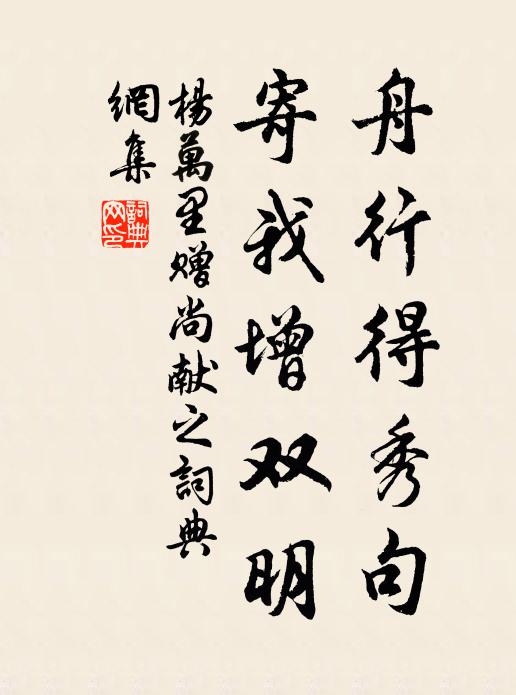 舟行得秀句
寄我增双明
楊萬里赠尚献之詞典
網集
詞典
网印